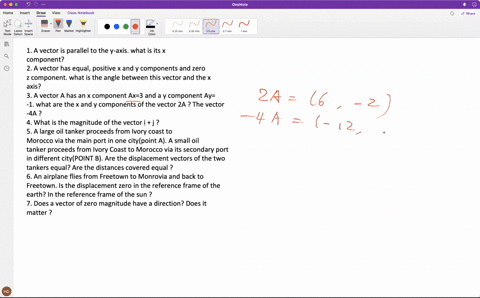 OneNote
File Home Insert Draw View Class Notebook
1. A vector is parallel to the y-axis. what is its x
component?
2. A vector has equal, positive x and y components and zero
z component. what is the angle between this vector and the x
axis?
3. A vector A has an x component Ax=3 and a y component Ay=
-1. what are the x and y components of the vector 2A ? The vector
-4A ?
4. What is the magnitude of the vector i + j ?
5. A large oil tanker proceeds from Ivory coast to
Morocco via the main port in one city(point A). A small oil
tanker proceeds from Ivory Coast to Morocco via its secondary port
in different city(POINT B). Are the displacement vectors of the two
tankers equal? Are the distances covered equal ?
6. An airplane flies from Freetown to Monrovia and back to
Freetown. Is the displacement zero in the reference frame of the
earth? In the reference frame of the sun ?
7. Does a vector of zero magnitude have a direction? Does it
matter ?
2A = (6 , -2)
-4A = (-12,